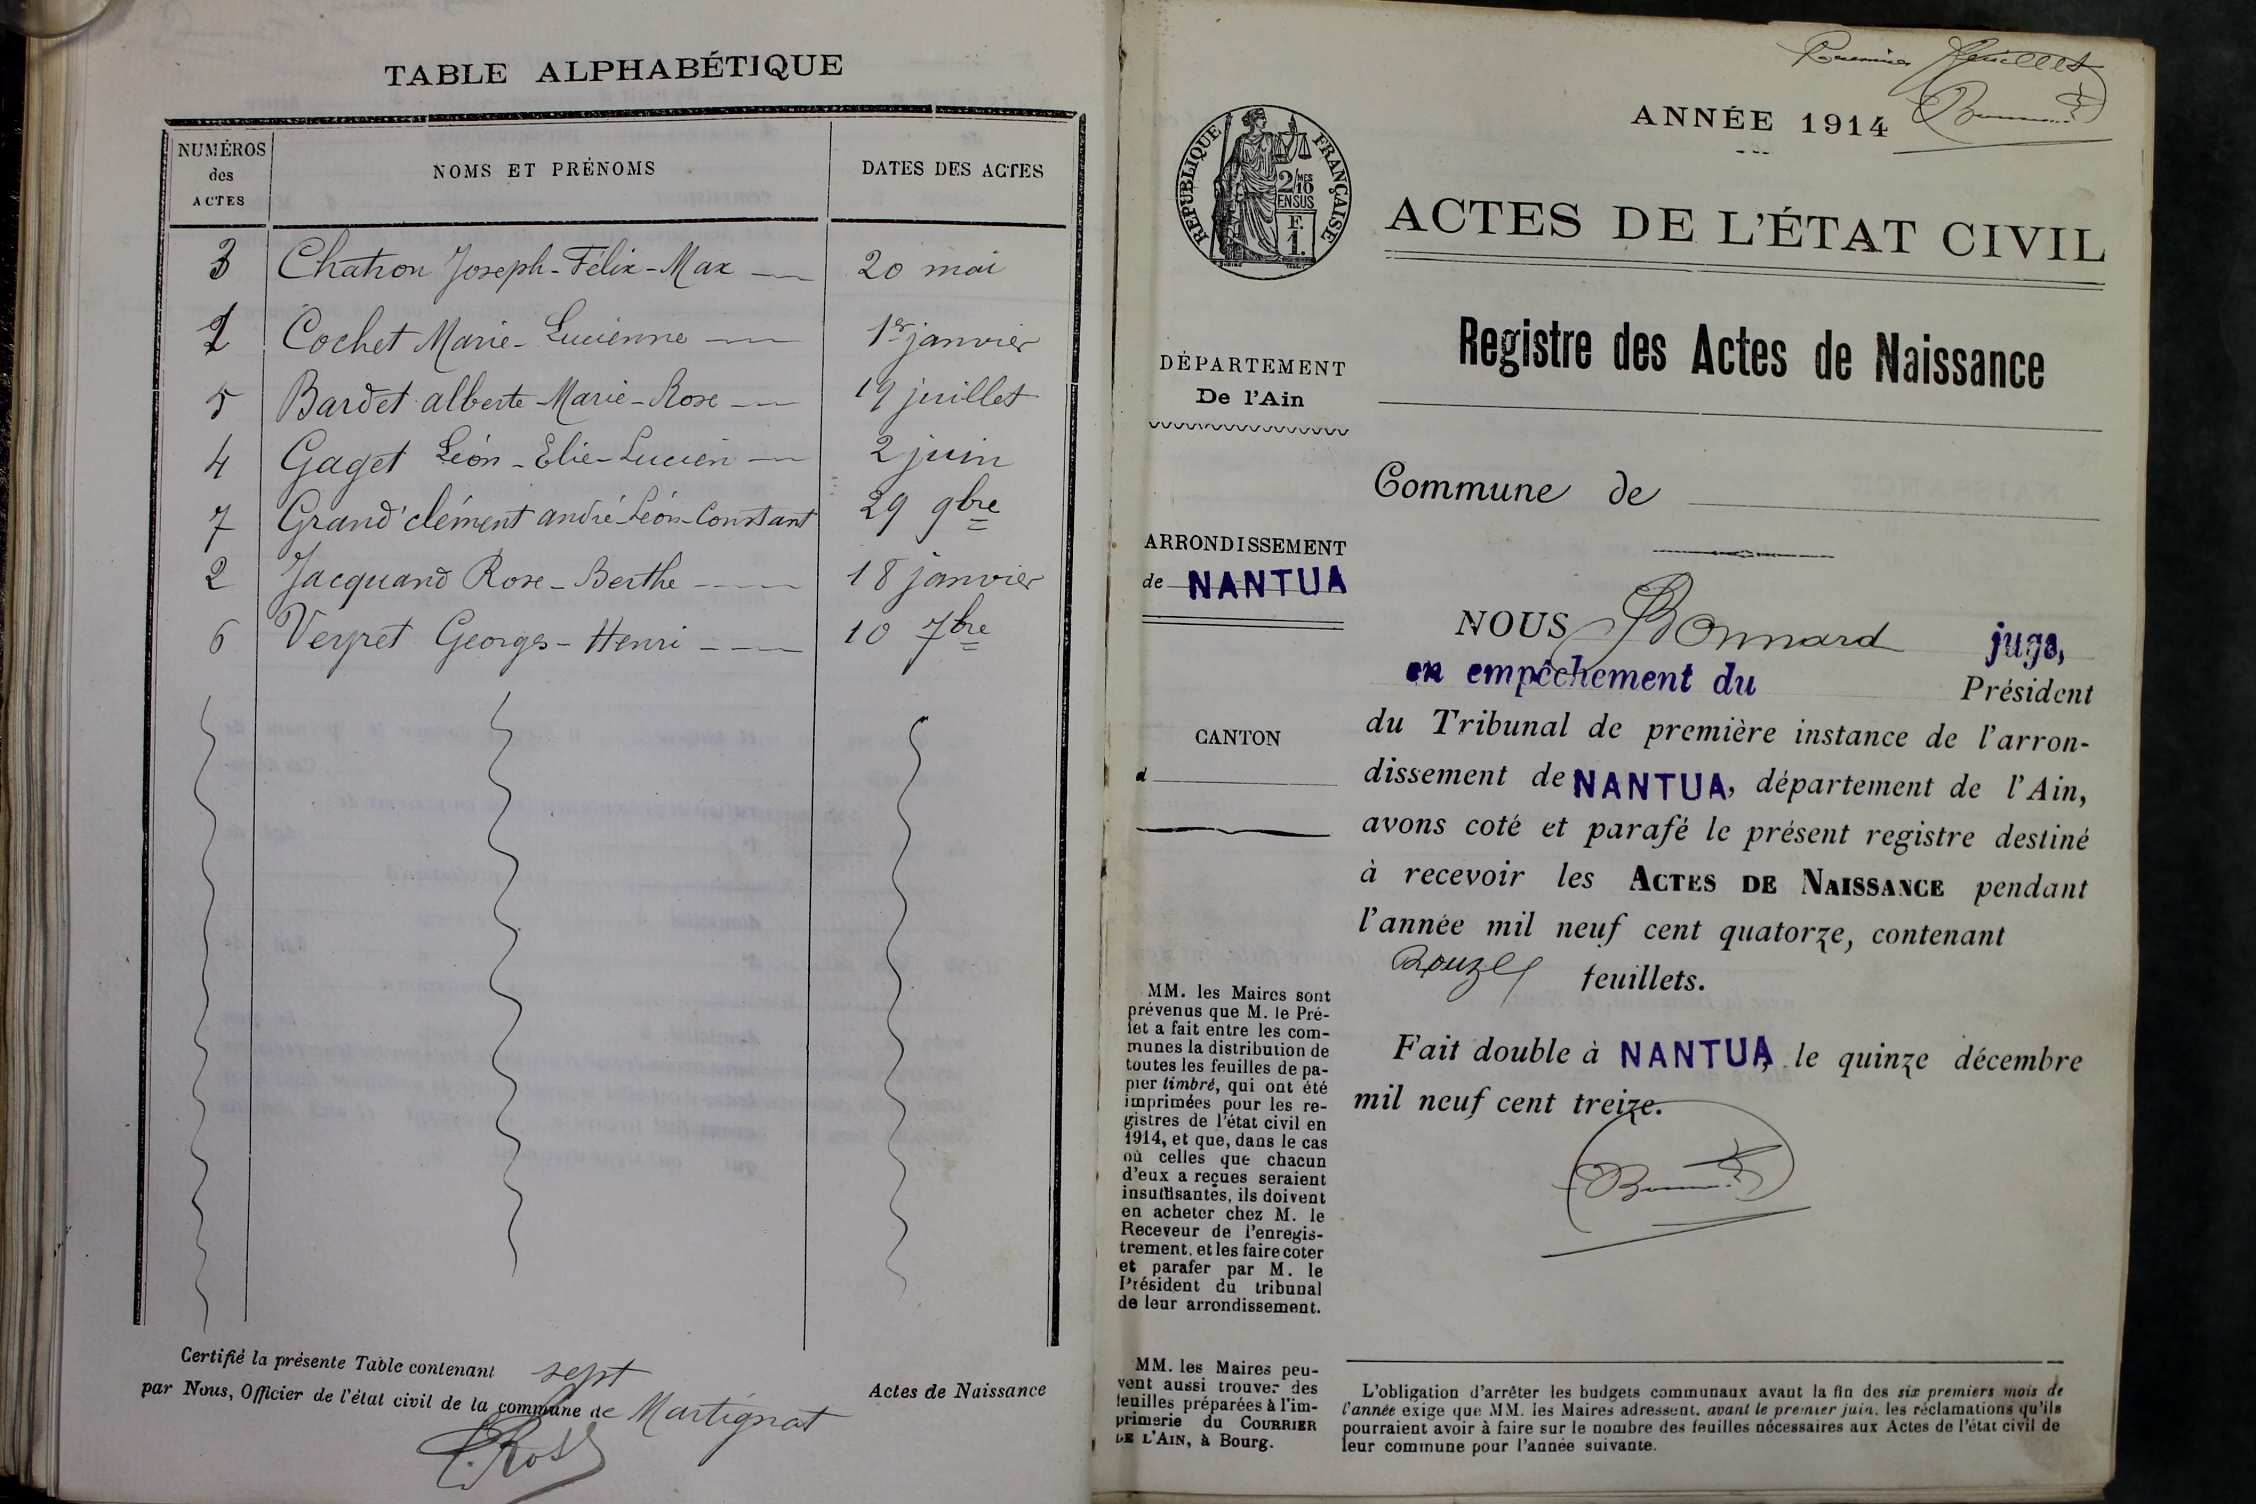 TABLE ALPHABÉTIQUE
NUMÉROS des ACTES NOMS ET PRÉNOMS DATES DES ACTES
3 Chatron Joseph-Félix-Max 20 mai
1 Cochet Marie-Lucienne 1er janvier
5 Bardet alberte-Marie-Rose 19 juillet
4 Gaget Léon-Elie-Lucien 2 juin
7 Grand'clément andré-Léon-Constant 29 9bre
2 Jacquand Rose-Berthe 18 janvier
6 Veyret Georges-Henri 10 7bre
Certifié la présente Table contenant sept Actes de Naissance
par Nous, Officier de l'état civil de la commune de Martignat
Premier feuillet
ANNÉE 1914
RÉPUBLIQUE FRANÇAISE
2/10 MES
EN SUS
F.
1.
ACTES DE L'ÉTAT CIVIL
Registre des Actes de Naissance
DÉPARTEMENT
De l'Ain
Commune de
ARRONDISSEMENT
de NANTUA
CANTON
d
NOUS Bonnard juge,
en empêchement du Président
du Tribunal de première instance de l'arron-
dissement de NANTUA, département de l'Ain,
avons coté et parafé le présent registre destiné
à recevoir les ACTES DE NAISSANCE pendant
l'année mil neuf cent quatorze, contenant
Douze feuillets.
Fait double à NANTUA, le quinze décembre
mil neuf cent treize.
MM. les Maires sont
prévenus que M. le Pré-
fet a fait entre les com-
munes la distribution de
toutes les feuilles de pa-
pier timbré, qui ont été
imprimées pour les re-
gistres de l'état civil en
1914, et que, dans le cas
où celles que chacun
d'eux a reçues seraient
insuffisantes, ils doivent
en acheter chez M. le
Receveur de l'enregis-
trement, et les faire coter
et parafer par M. le
Président du tribunal
de leur arrondissement.
MM. les Maires peu-
vent aussi trouver des
feuilles préparées à l'im-
primerie du COURRIER
DE L'AIN, à Bourg.
L'obligation d'arrêter les budgets communaux avant la fin des six premiers mois de
l'année exige que MM. les Maires adressent, avant le premier juin, les réclamations qu'ils
pourraient avoir à faire sur le nombre des feuilles nécessaires aux Actes de l'état civil de
leur commune pour l'année suivante.